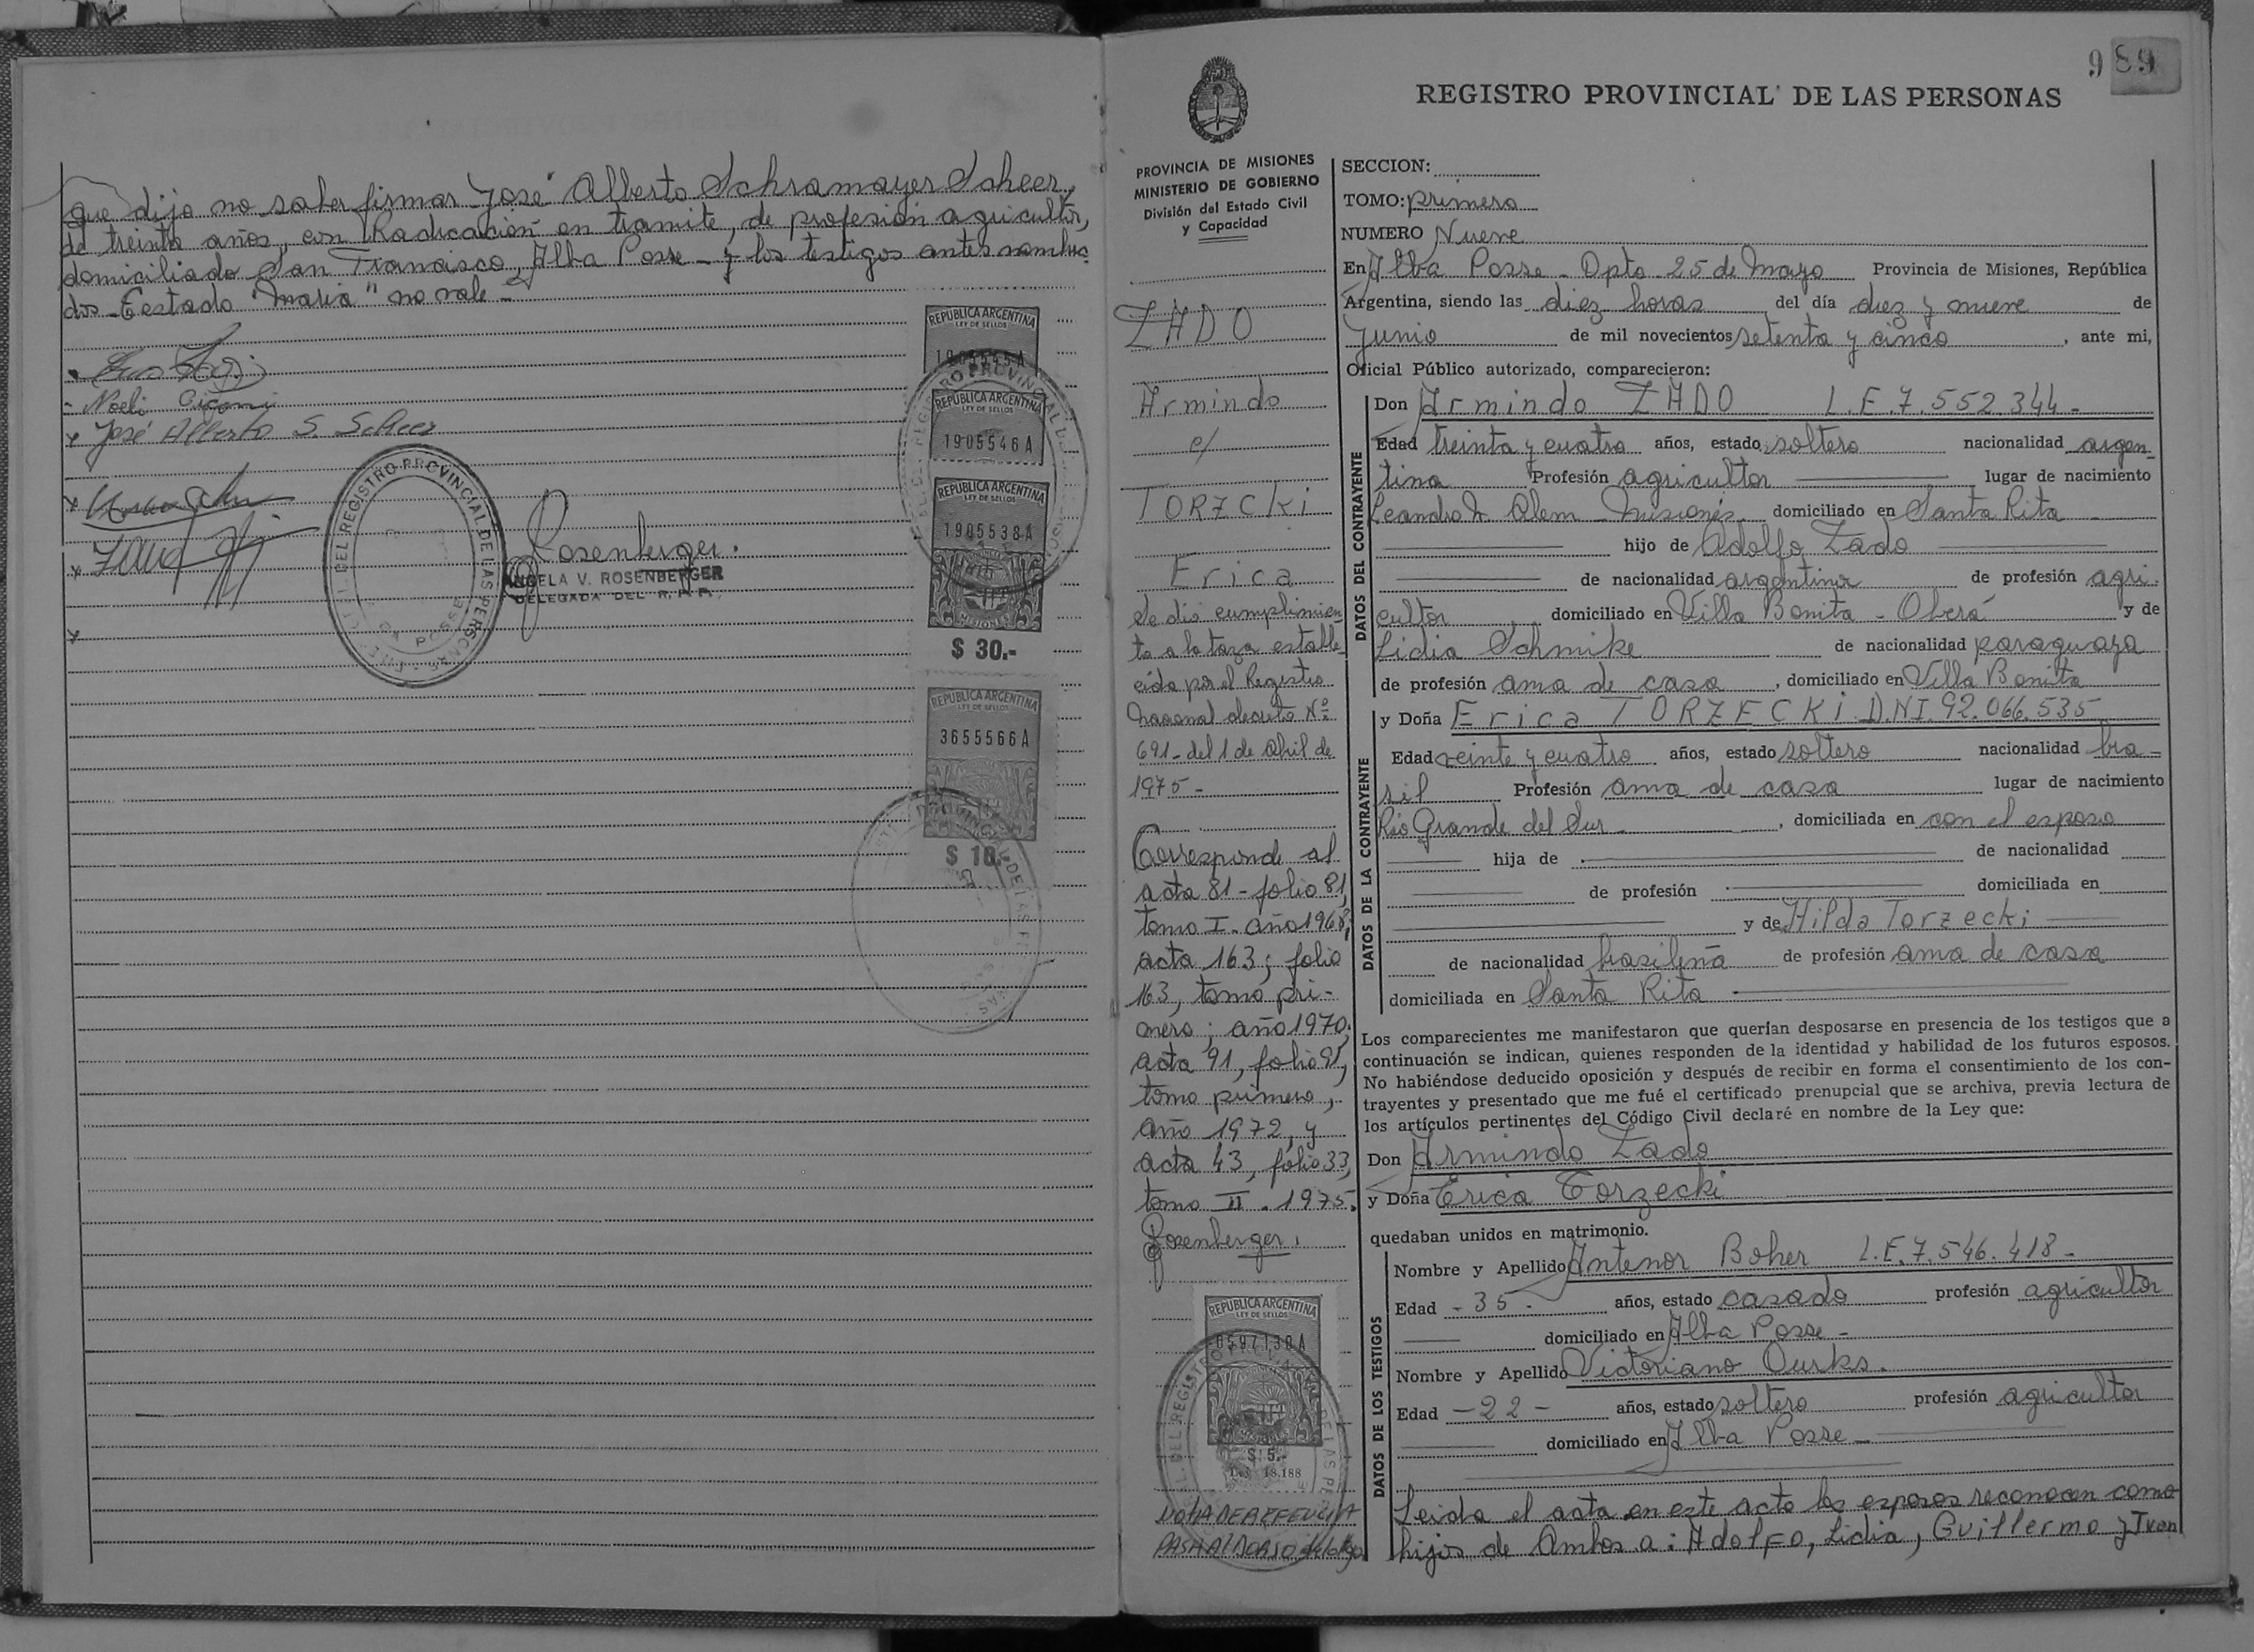 que dijo no saber firmar José Alberto Schramayer Scheer,
de treinta años, con Radicación en tramite, de profesión agricultor,
domiciliado San Francisco, Alba Posse - y los testigos antes nombra
dos - Testado "maria" no vale -
Noeli
José Alberto S. Scheer
Rosenberger.
ANGELA V. ROSENBERGER
DELEGADA DEL R.P.P.
REGISTRO PROVINCIAL DE LAS PERSONAS
REPUBLICA ARGENTINA
LEY DE SELLOS
1905545A
REPUBLICA ARGENTINA
LEY DE SELLOS
1905546A
REPUBLICA ARGENTINA
LEY DE SELLOS
1905538A
MISIONES
$ 30.-
REPUBLICA ARGENTINA
LEY DE SELLOS
3655566A
$ 10.-
989
REGISTRO PROVINCIAL DE LAS PERSONAS
PROVINCIA DE MISIONES
MINISTERIO DE GOBIERNO
División del Estado Civil
y Capacidad
ZADO
Armindo
c/
TORZCKi
Erica
Se dió cumplimien
to a la taza estable
cida por el Registro
Nacional decreto Nº
691 - del 1 de Abril de
1975 -
Corresponde al
acta 81 - folio 81,
tomo I - año 1968;
acta 163; folio
163, tomo pri-
mero; año 1970;
acta 91, folio 91,
tomo primero,
año 1972, y
acta 43, folio 33,
tomo II . 1975.
Rosenberger.
REPUBLICA ARGENTINA
LEY DE SELLOS
0597130A
$ 5.-
Ley 18.188
NOTA DE REFERENCIA
PASA AL DORSO del folio
SECCION:
TOMO: primero
NUMERO Nueve
En Alba Posse - Dpto - 25 de Mayo Provincia de Misiones, República
Argentina, siendo las diez horas del día diez y nueve de
Junio de mil novecientos setenta y cinco , ante mi,
Oficial Público autorizado, comparecieron:
DATOS DEL CONTRAYENTE
Don Armindo ZADO L.E.7.552.344-
Edad treinta y cuatro años, estado soltero nacionalidad argen-
tina Profesión agricultor lugar de nacimiento
Leandro N. Alem - Misiones domiciliado en Santa Rita
hijo de Adolfo Zado
de nacionalidad argentina de profesión agri-
cultor , domiciliado en Villa Bonita - Oberá y de
Lidia Schmike de nacionalidad paraguaya
de profesión ama de casa , domiciliado en Villa Bonita
DATOS DE LA CONTRAYENTE
y Doña Erica TORZECKi D.N.I. 92.066.535
Edad veinte y cuatro años, estado soltero nacionalidad bra-
sil Profesión ama de casa lugar de nacimiento
Río Grande del Sur - , domiciliada en con el esposo
hija de de nacionalidad
de profesión domiciliada en
y de Hilda Torzecki
de nacionalidad brasileña de profesión ama de casa
domiciliada en Santa Rita
Los comparecientes me manifestaron que querían desposarse en presencia de los testigos que a
continuación se indican, quienes responden de la identidad y habilidad de los futuros esposos.
No habiéndose deducido oposición y después de recibir en forma el consentimiento de los con-
trayentes y presentado que me fué el certificado prenupcial que se archiva, previa lectura de
los artículos pertinentes del Código Civil declaré en nombre de la Ley que:
Don Armindo Zado
y Doña Erica Torzecki
quedaban unidos en matrimonio.
DATOS DE LOS TESTIGOS
Nombre y Apellido Antenor Boher L.E.7.546.418-
Edad - 35 - años, estado casado profesión agricultor
domiciliado en Alba Posse -
Nombre y Apellido Victoriano Durks.
Edad - 22 - años, estado soltero profesión agricultor
domiciliado en Alba Posse -
Leida el acta en este acto los esposos reconocen como
hijos de Ambos a: Adolfo, Lidia, Guillermo y Ivan